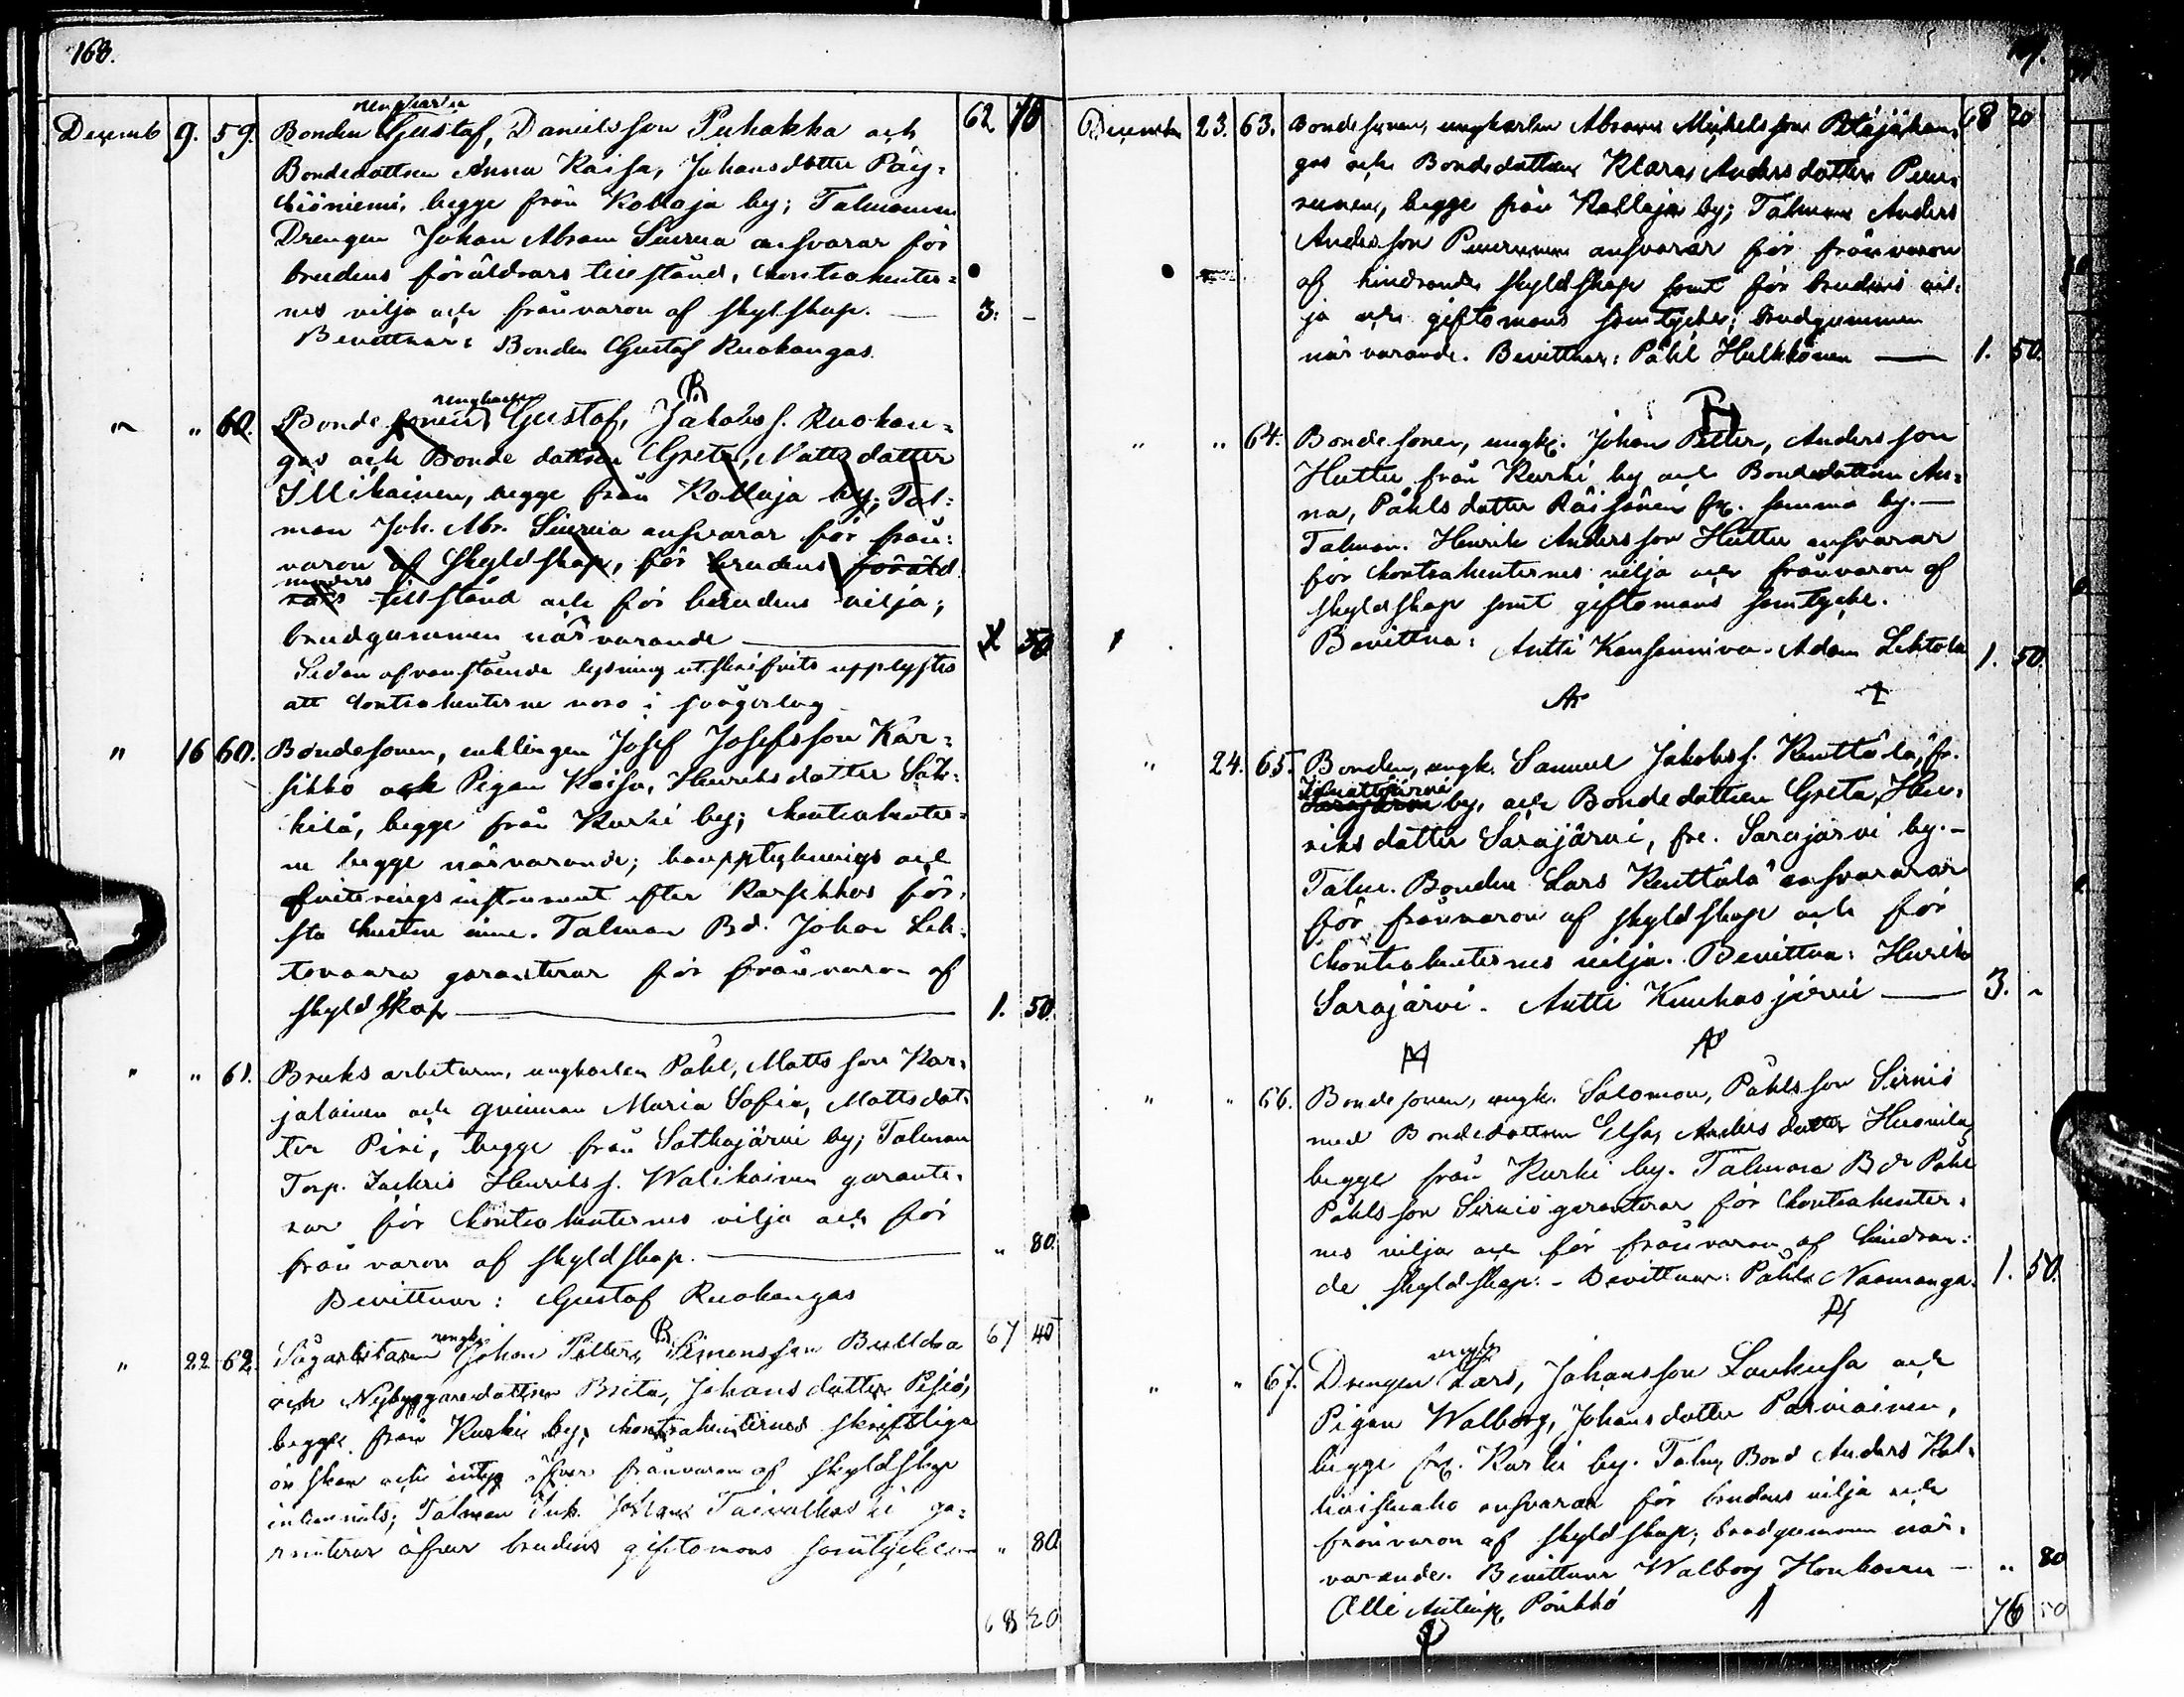 168.
ungkarlen
Decemb 9. 59. Bonden Gustaf, Danielsson Puhakka och 62 70
Bondedottren Anna Kaisa, Johansdotter Päy-
täöniemi, begge från Kollaja by; Talmannen
Drengen Johan Abram Siurua ansvarar för
brudens föräldrars tillstånd, kontrahenter=
nes vilja och frånvaron af skylskap. — 3. -
Bevittnar: Bonden Gustaf Ruokangas.
R
ungkarlen
" " 60. Bonde sonen Gustaf, Jakobs s. Ruokan=
gas och Bonde dottren Greta, Mattsdotter
Illikainen, begge från Kollaja by; Tal=
man Joh. Abr. Siurua ansvarar för från=
varon af Skyldskap, för brudens föräld
moders
rars tillstånd och för brudens vilja;
brudgummen närvarande — 1 50
Sedan ofvanstående lysning utskrifvits upplystes
att Contrahenterne voro i svågerlag
" 16 60. Bondesonen, enklingen Josef Josefsson Kar=
sikko och Pigan Kaisa, Henriksdotter Säk=
kilä, begge från Kurki by; kontrahenter=
ne begge närvarande; bouppteknings och
qviterings instrument efter Karsikkos för=
sta hustru inne. Talman Bd. Johan Leh=
tovaara garanterar för frånvaron af
skyldskap — 1. 50.
" " 61. Bruks arbetaren, ungkarlen Påhl, Matts son Kar=
jalainen och qvinnan Maria Sofia, Mattsdot=
ter Piri, begge från Sotkajärvi by; Talman
Torp. Zachris Henriks s. Walikainen garante=
rar för kontrahenternes vilja och för
från varon af skyldskap. — " 80.
Bevittnar: Gustaf Ruokangas
R 67 40
ungk.
" 22 62. Sågarbetaren Johan Petter, Simonsson Buldra
och Nybyggaredottren Brita, Johans dotter Pesiö,
begge från Kurki by, kontrahenternes skriftliga
ön skan och intyg öfver frånvaron af skyldskap
inlemnats; Talman Johans Taivalkoski ga=
ranterar öfver brudens giftomans samtycke — " 80
68 20
December 23. 63. Bondesonen, ungkarlen Abram Michelsson Petäjäkan= 68 20
gas och Bondedottren Klara Andersdotter Puu=
runen, begge från Kollaja by; Talman Anders
Andersson Puurunen ansvarar för frånvaron
af hindrande skyldskap samt för brudens vil=
ja och giftomans samtycke; brudgummen
närvarande. Bevittnar: Påhl Hulkkonen — 1. 50.
" " 64. Bonde sonen, ungk. Johan Petter, Andersson
Huttu från Kurki by och Bondedottren An=
na, Påhls dotter Räisänen fr. samma by. —
Talman. Henrik Andersson Huttu ansvarar
för kontrahenternes vilja och frånvaron af
skyldskap samt giftomans samtycke.
Bevittna: Antti Kansanniva. Adam Lehtola 1. 50.
" 24. 65. Bonden, ungk. Samuel Jakobs s. Kenttälä, fr.
Sarajärvi by, och Bondedottren Greta, Hen=
riks dotter Sarajärvi, fr. Sarajärvi by. —
Talm. Bonden Lars Kenttälä ansvarar
för frånvaron af skyldskap och för
kontrahenternes vilja. Bevittna: Henrik
Sarajärvi. Antti Kuuhasjärvi — 3. -
" " 66. Bonde sonen, ungk. Salomon, Påhls son Sirniö
med Bondedottren Elsa, Anders dotter Huovila,
begge från Kurki by. Talman Bd Påhl
Påhls son Sirniö garanterar för kontrahenter=
nes vilja och för frånvaron af hindran=
de skyldskap. - Bevittnar: Påhl Naamanga. 1. 50.
ungk.
" " 67. Drengen Lars, Johansson Loukusa och
Pigan Walborg, Johans dotter Parviainen,
begge fr. Kurki by. Talm. Bond Anders Kal=
lioisuaho ansvarar för brudens vilja och
frånvaron af skyldskap; brudgummen när=
varande. Bevittnar Walborg Honkanen — " 80
Olli Antinp. Pönkkö 76 50